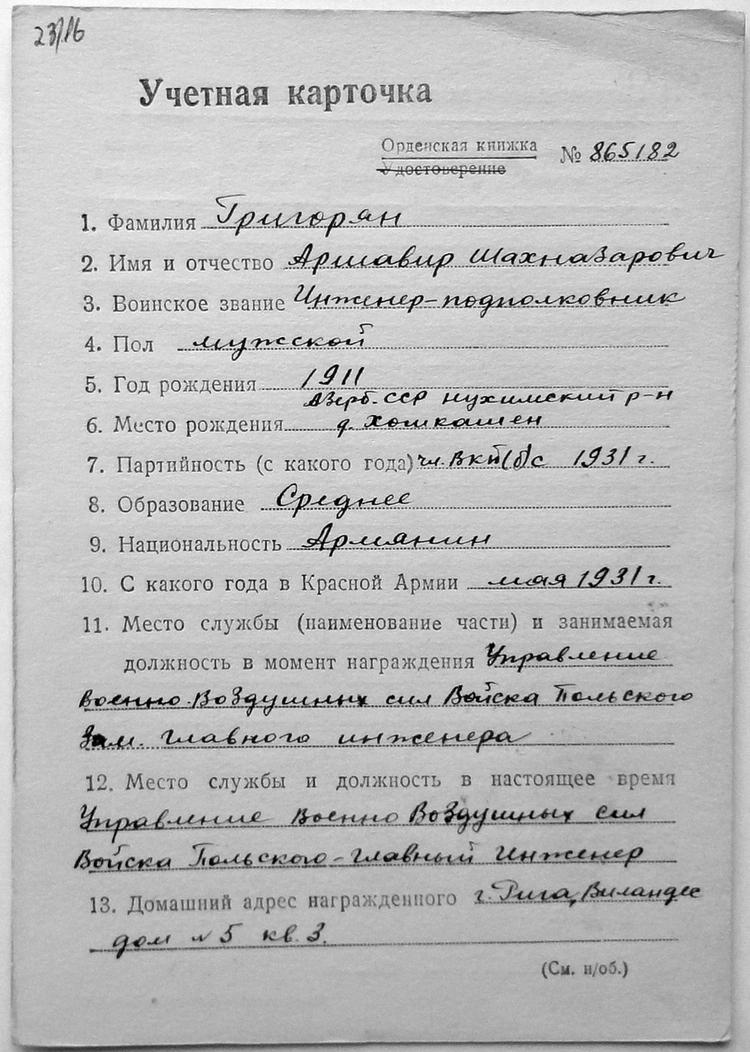 23/16
Учетная карточка
Орденская книжка
Удостоверение
№ 865182
1. Фамилия Григорян
2. Имя и отчество Аршавир Шахназарович
3. Воинское звание Инженер-подполковник
4. Пол мужской
5. Год рождения 1911
Азерб. ССР Нухимский р-н
6. Место рождения д. Хошкашен
7. Партийность (с какого года) чл. ВКП(б) с 1931 г.
8. Образование Среднее
9. Национальность Армянин
10. С какого года в Красной Армии мая 1931 г.
11. Место службы (наименование части) и занимаемая
должность в момент награждения Управление
Военно-Воздушных сил Войска Польского
Зам. главного инженера
12. Место службы и должность в настоящее время
Управление Военно Воздушных сил
Войска Польского - главный Инженер
13. Домашний адрес награжденного г. Рига, Виландес
дом №5 кв. 3.
(См. н/об.)